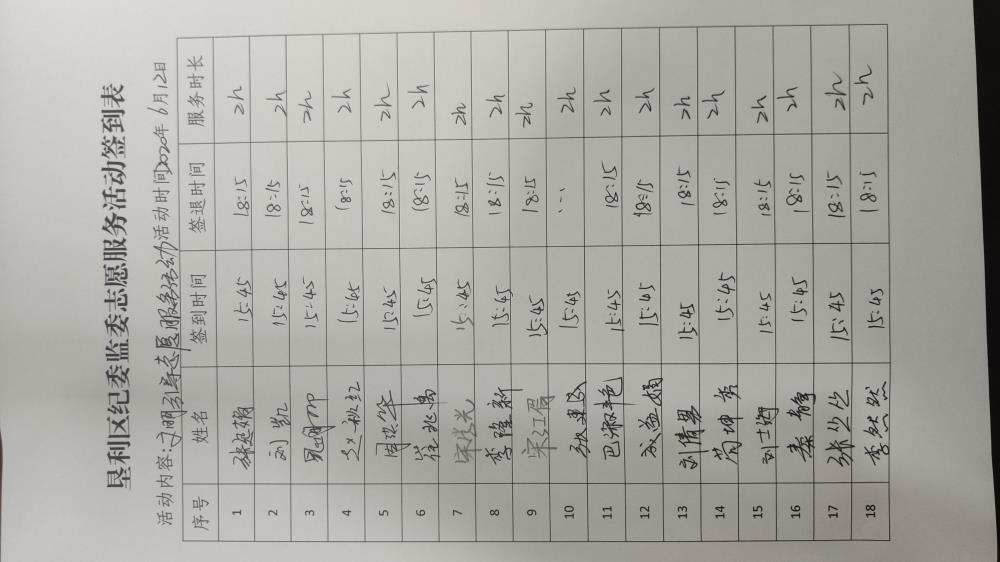 垦利区纪委监委志愿服务活动签到表
活动内容:文明引导志愿服务活动 活动时间2020年6月12日
序号 姓名 签到时间 签退时间 服务时长
1 15:45 18:15 2h
2 刘凯 15:45 18:15 2h
3 15:45 18:15 2h
4 赵秋红 15:45 18:15 2h
5 周张华 15:45 18:15 2h
6 崔兆禹 15:45 18:15 2h
7 宋光光 15:45 18:15 2h
8 李隆新 15:45 18:15 2h
9 宋江眉 15:45 18:15 2h
10 15:45 ... 2h
11 巴淑艳 15:45 18:15 2h
12 成益娟 15:45 18:15 2h
13 刘倩男 15:45 18:15 2h
14 15:45 18:15 2h
15 刘士海 15:45 18:15 2h
16 秦静 15:45 18:15 2h
17 张丛丛 15:45 18:15 2h
18 李然然 15:45 18:15 2h